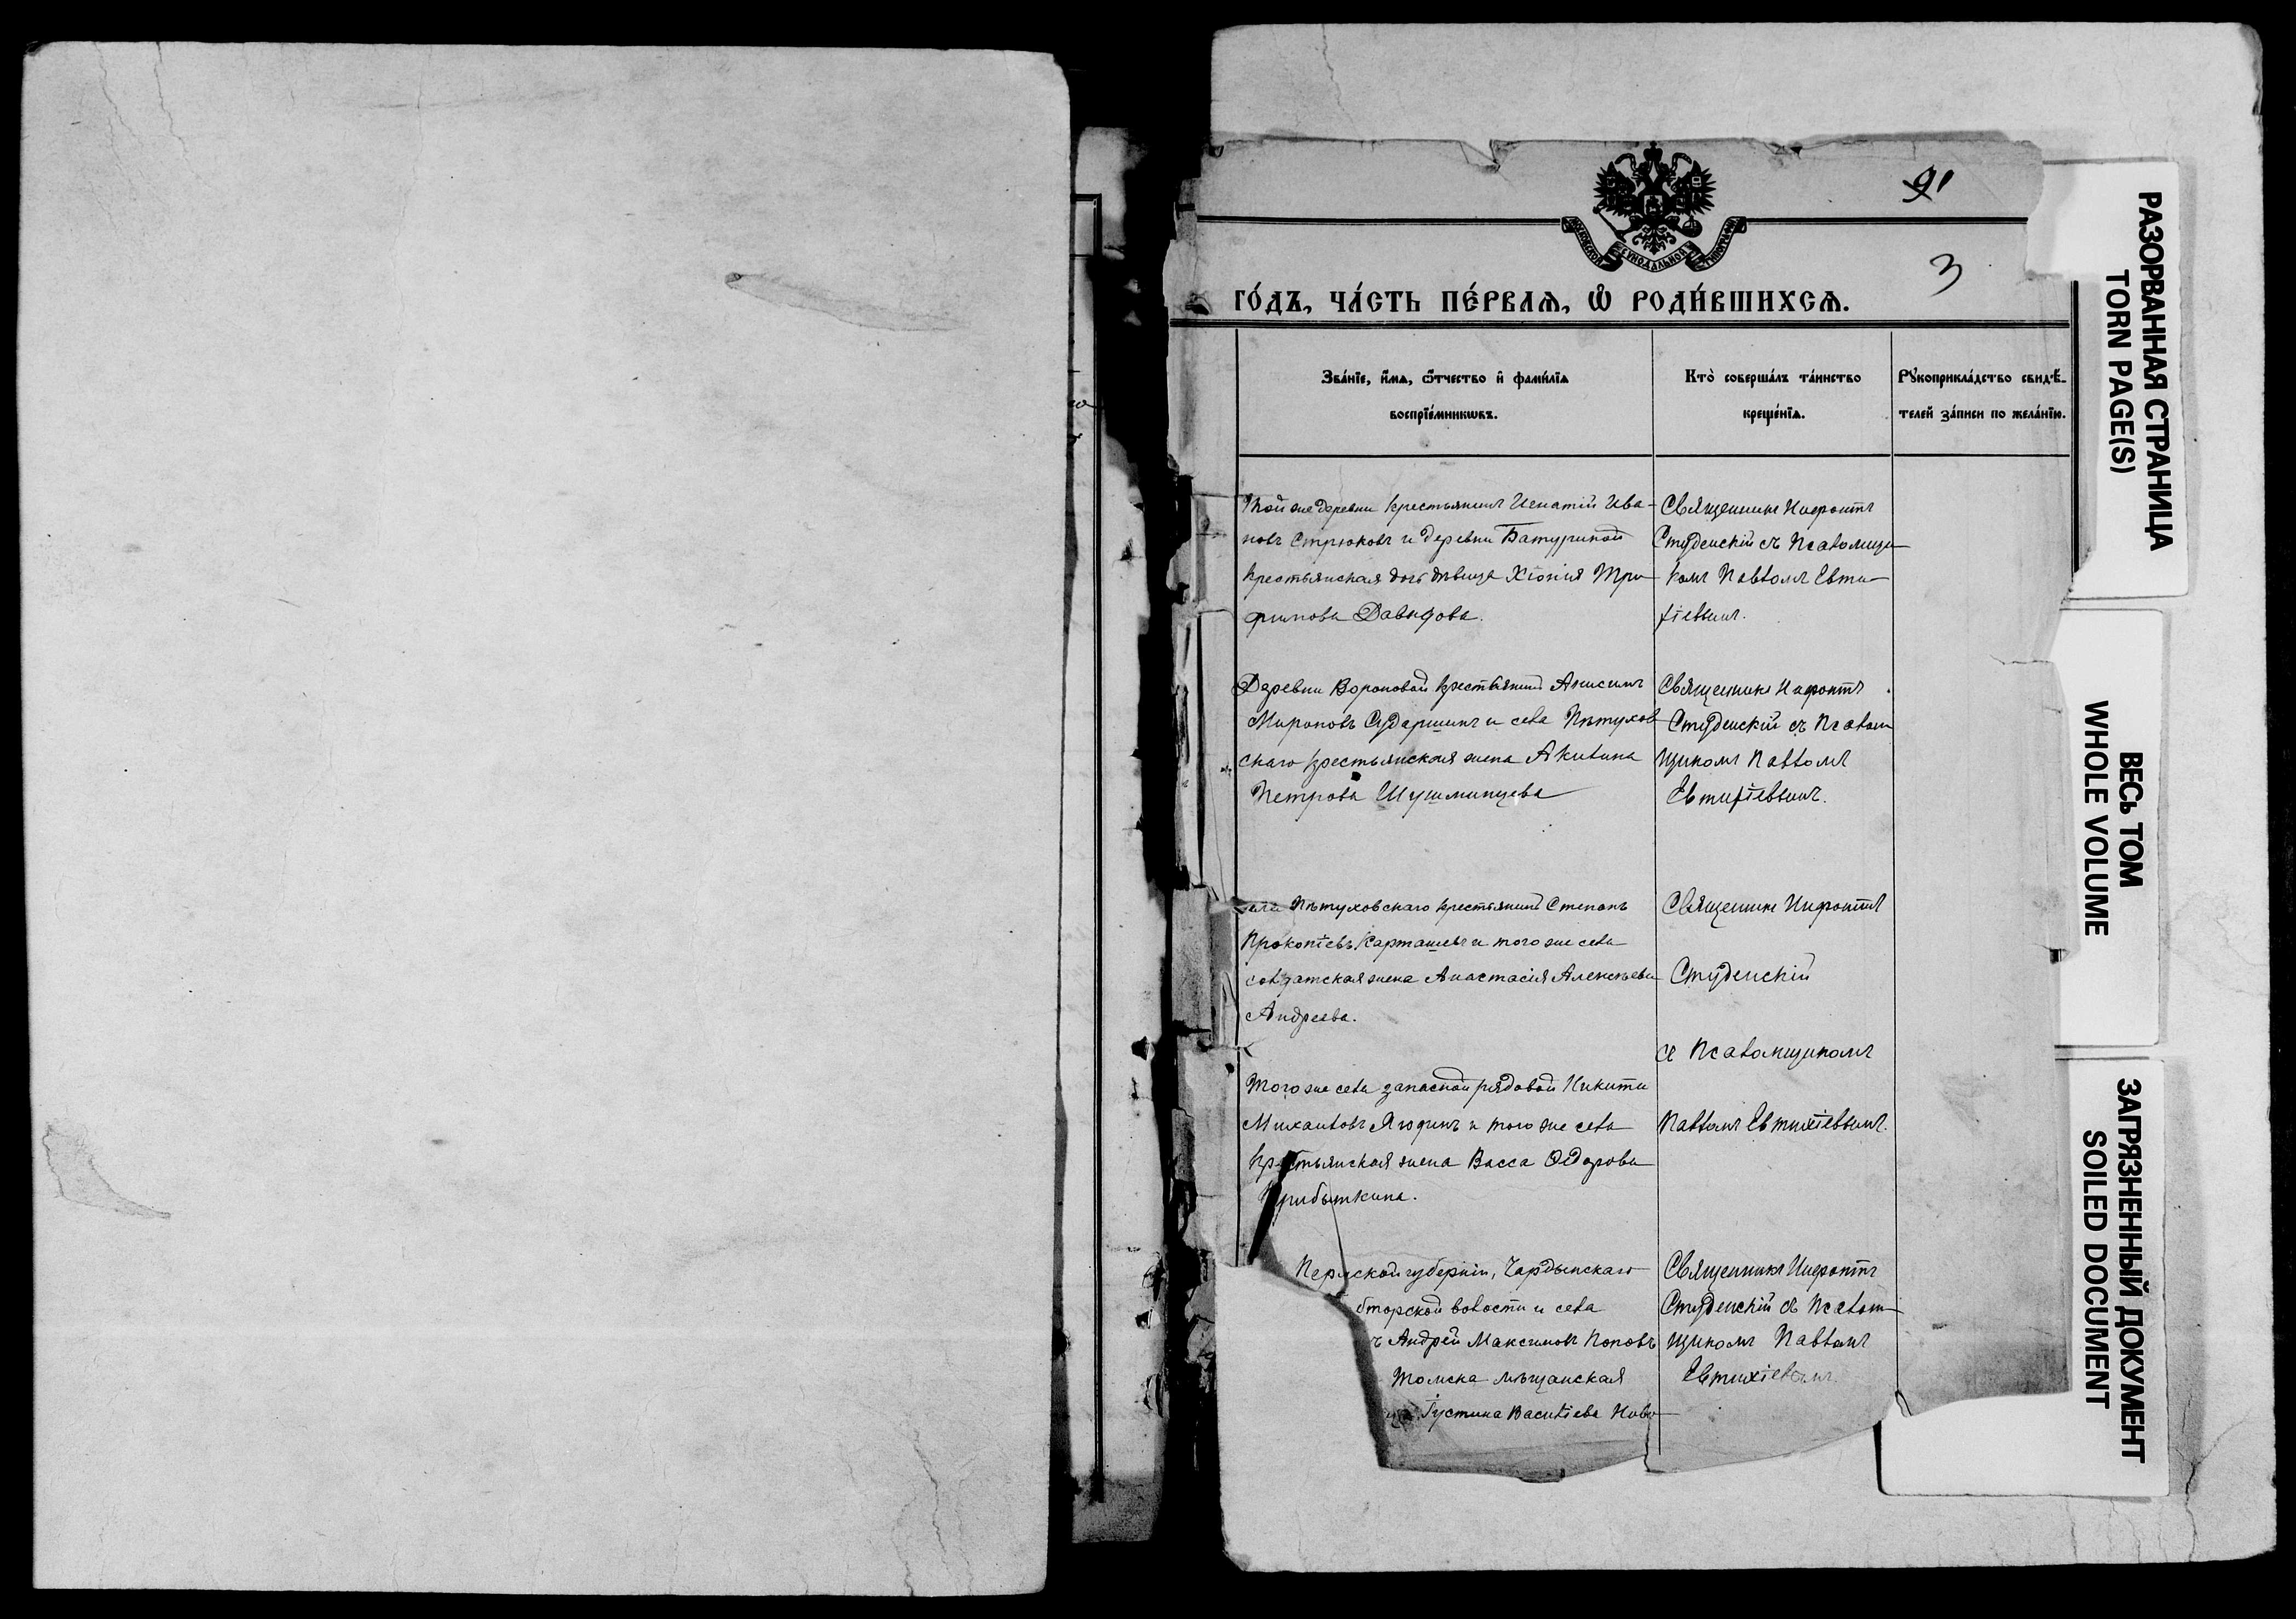 91
3
МОСКОВСКОЙ СѴНОДАЛЬНОЙ ТИПОГРАФІИ
ГО́ДЪ, ЧА́СТЬ ПЕ́РВАѦ, Ѽ РОДИ́ВШИХСѦ.
Зва́нїе, и҆́мѧ, ѻ҆́тчество и҆ фами́лїѧ
воспрїе́мникѡвъ.
Кто̀ соверша́лъ та́инство
креще́нїѧ.
Рꙋкоприкла́дство свидѣ́-
телей за́писи по жела́нїю.
Той же деревни крестьянинъ Игнатій Ива-
новъ Стрюковъ и деревни Батуриной
крестьянская дочь дѣвица Хіонія Три-
фимова Давыдова.
Священникъ Нифонтъ
Студенскій съ Псаломщи-
комъ Павломъ Евти-
хіевымъ.
Деревни Вороновой крестьянинъ Анисимъ
Мироновъ Сударшинъ и села Пѣтухов-
скаго крестьянская жена Акилина
Петрова Шушминцева
Священникъ Нифонтъ
Студенскій съ Псалом-
щикомъ Павломъ
Евтихіевымъ.
села Пѣтуховскаго крестьянинъ Степанъ
Прокопіевъ Карташевъ и того же села
солдатская жена Анастасія Алексѣева
Андреева.
Священникъ Нифонтъ
Студенскій
съ Псаломщикомъ
Павломъ Евтихіевымъ.
Того же села запасной рядовой Никита
Михаиловъ Ягодинъ и того же села
крестьянская жена Васса Ѳедорова
Прибыткина.
Пермской губерніи, Чардынскаго
волости и села
ъ Андрей Максимовъ Поповъ
Томска мѣщанская
Іустина Василіева Ново-
Священникъ Нифонтъ
Студенскій съ Псалом-
щикомъ Павломъ
Евтихіевымъ.
РАЗОРВАННАЯ СТРАНИЦА
TORN PAGE(S)
ВЕСЬ ТОМ
WHOLE VOLUME
ЗАГРЯЗНЕННЫЙ ДОКУМЕНТ
SOILED DOCUMENT